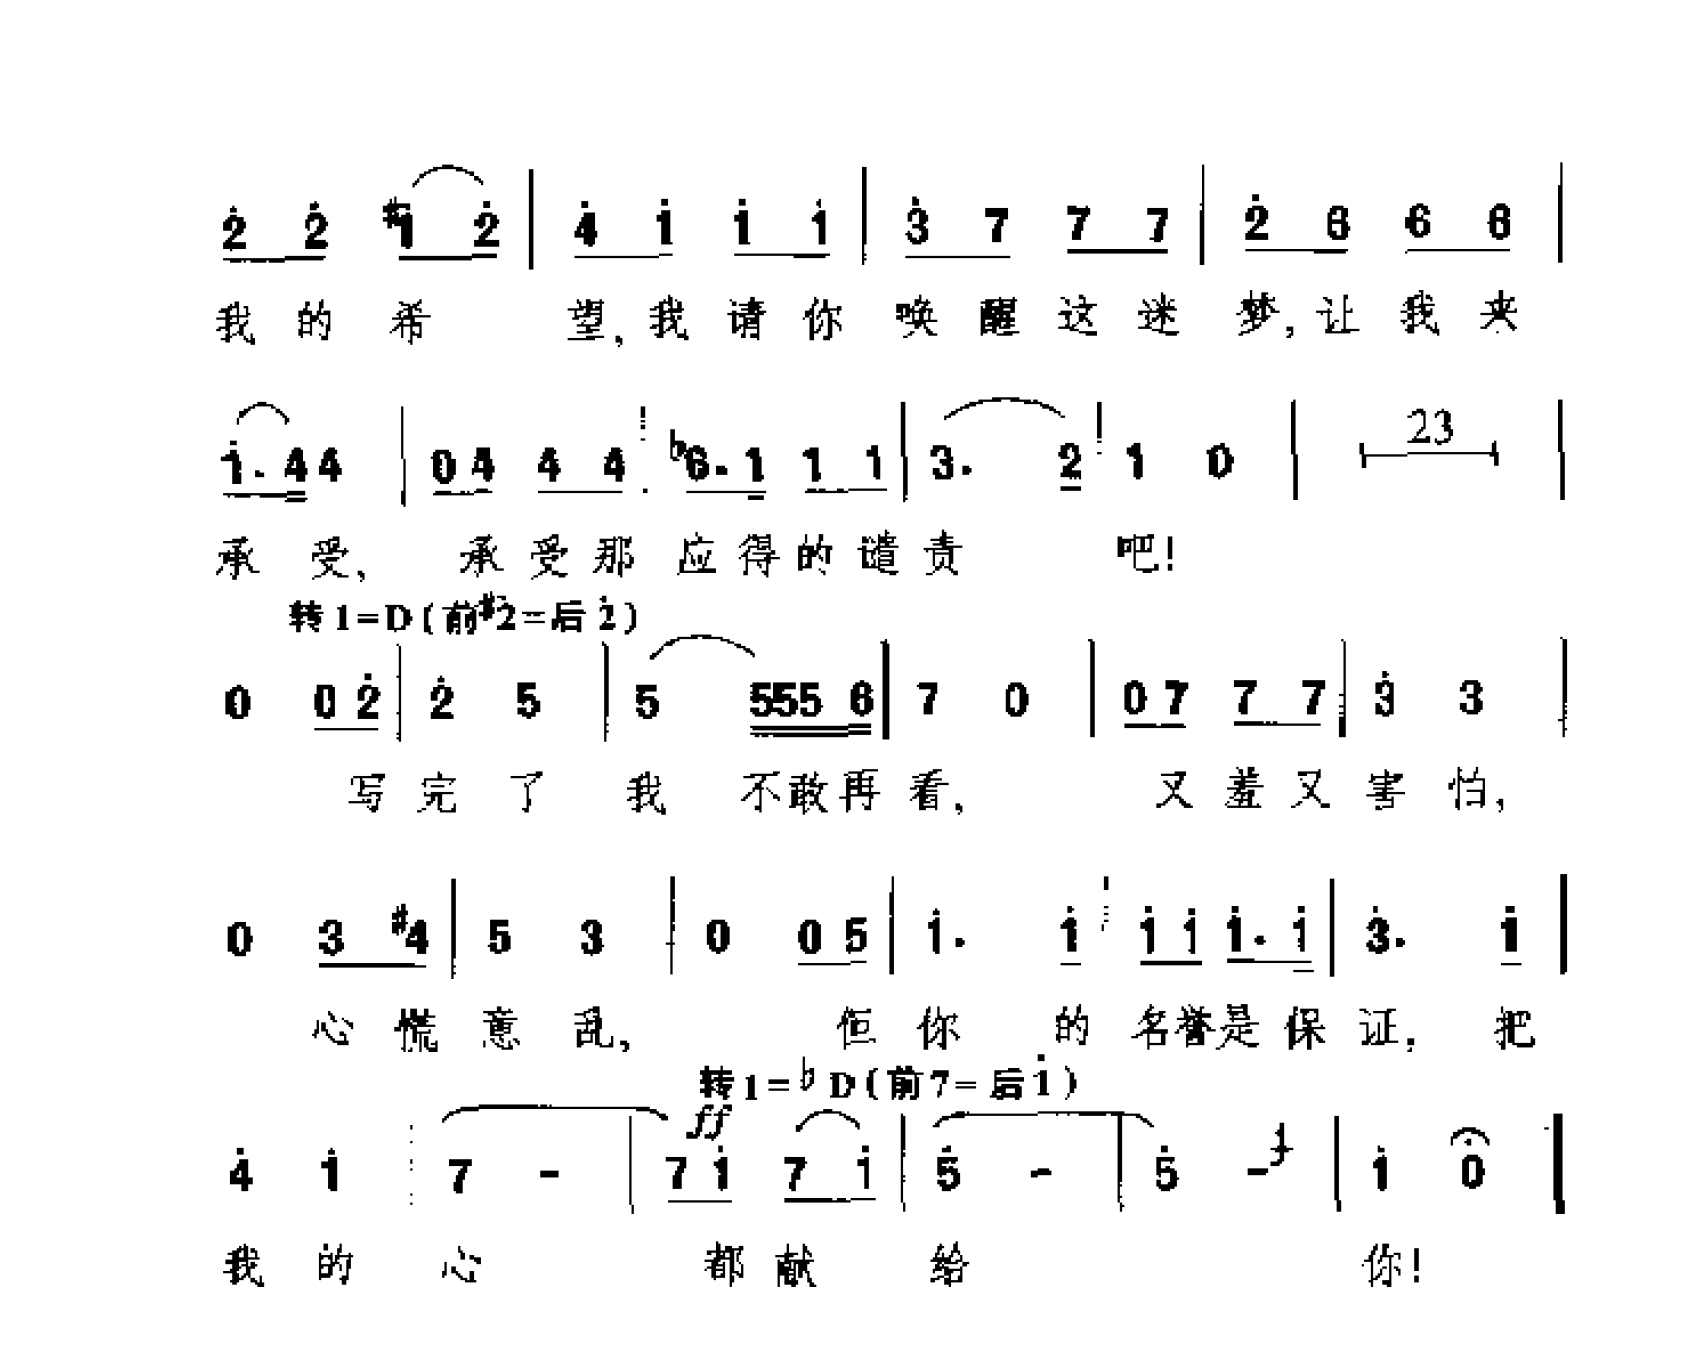 2 2 #1 2 | 4 1 1 1 | 3 7 7 7 | 2 6 6 6 |
我的希 望,我请你 唤醒这迷 梦,让我来
1. 4 4 | 0 4 4 4 ┊ ♭6. 1 1 1 | 3. 2 ┊ 1 0 | 23 |
承 受, 承受那 应得的谴责 吧!
转1=D(前#2=后2)
0 0 2 | 2 5 | 5 555 6 | 7 0 | 0 7 7 7 | 3 3 |
写完了 我 不敢再看, 又羞又害怕,
0 3 #4 | 5 3 | 0 0 5 | 1. 1 ┊ 1 1 1. 1 | 3. 1 |
心慌意乱, 但你 的名誉是保证, 把
转1=♭D(前7=后1)
ff
4 1 ┊ 7 - | 7 1 7 1 | 5 - | 5 - | 1 0
我的心 都献 给 你!